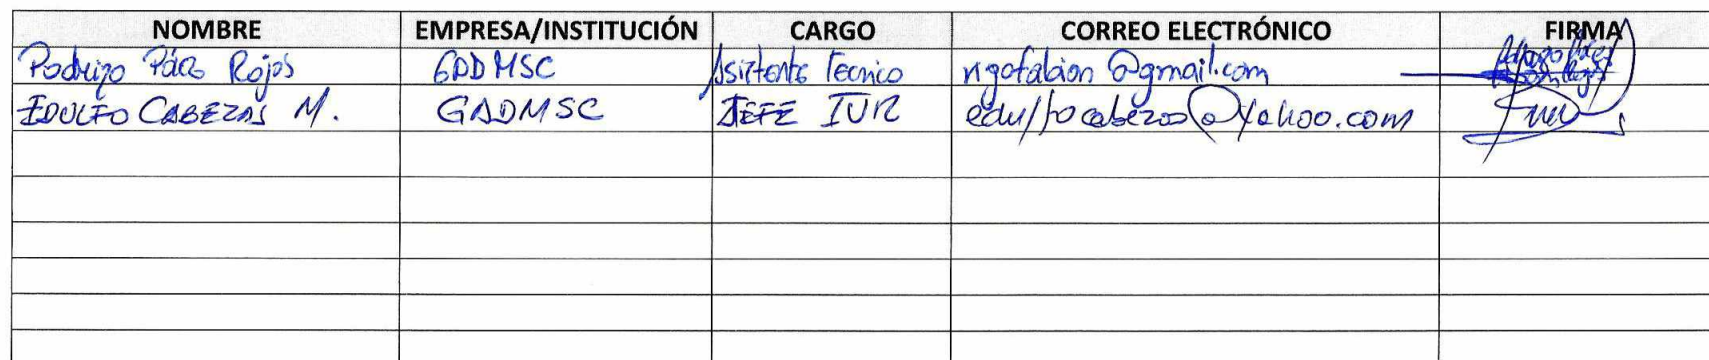 NOMBRE EMPRESA/INSTITUCIÓN CARGO CORREO ELECTRÓNICO FIRMA
Rodrigo Páez Rojas GADMSC Asistente Tecnico rigofabian@gmail.com
EDULFO CABEZAS M. GADMSC JEFE IUR edulfocabezas@yahoo.com